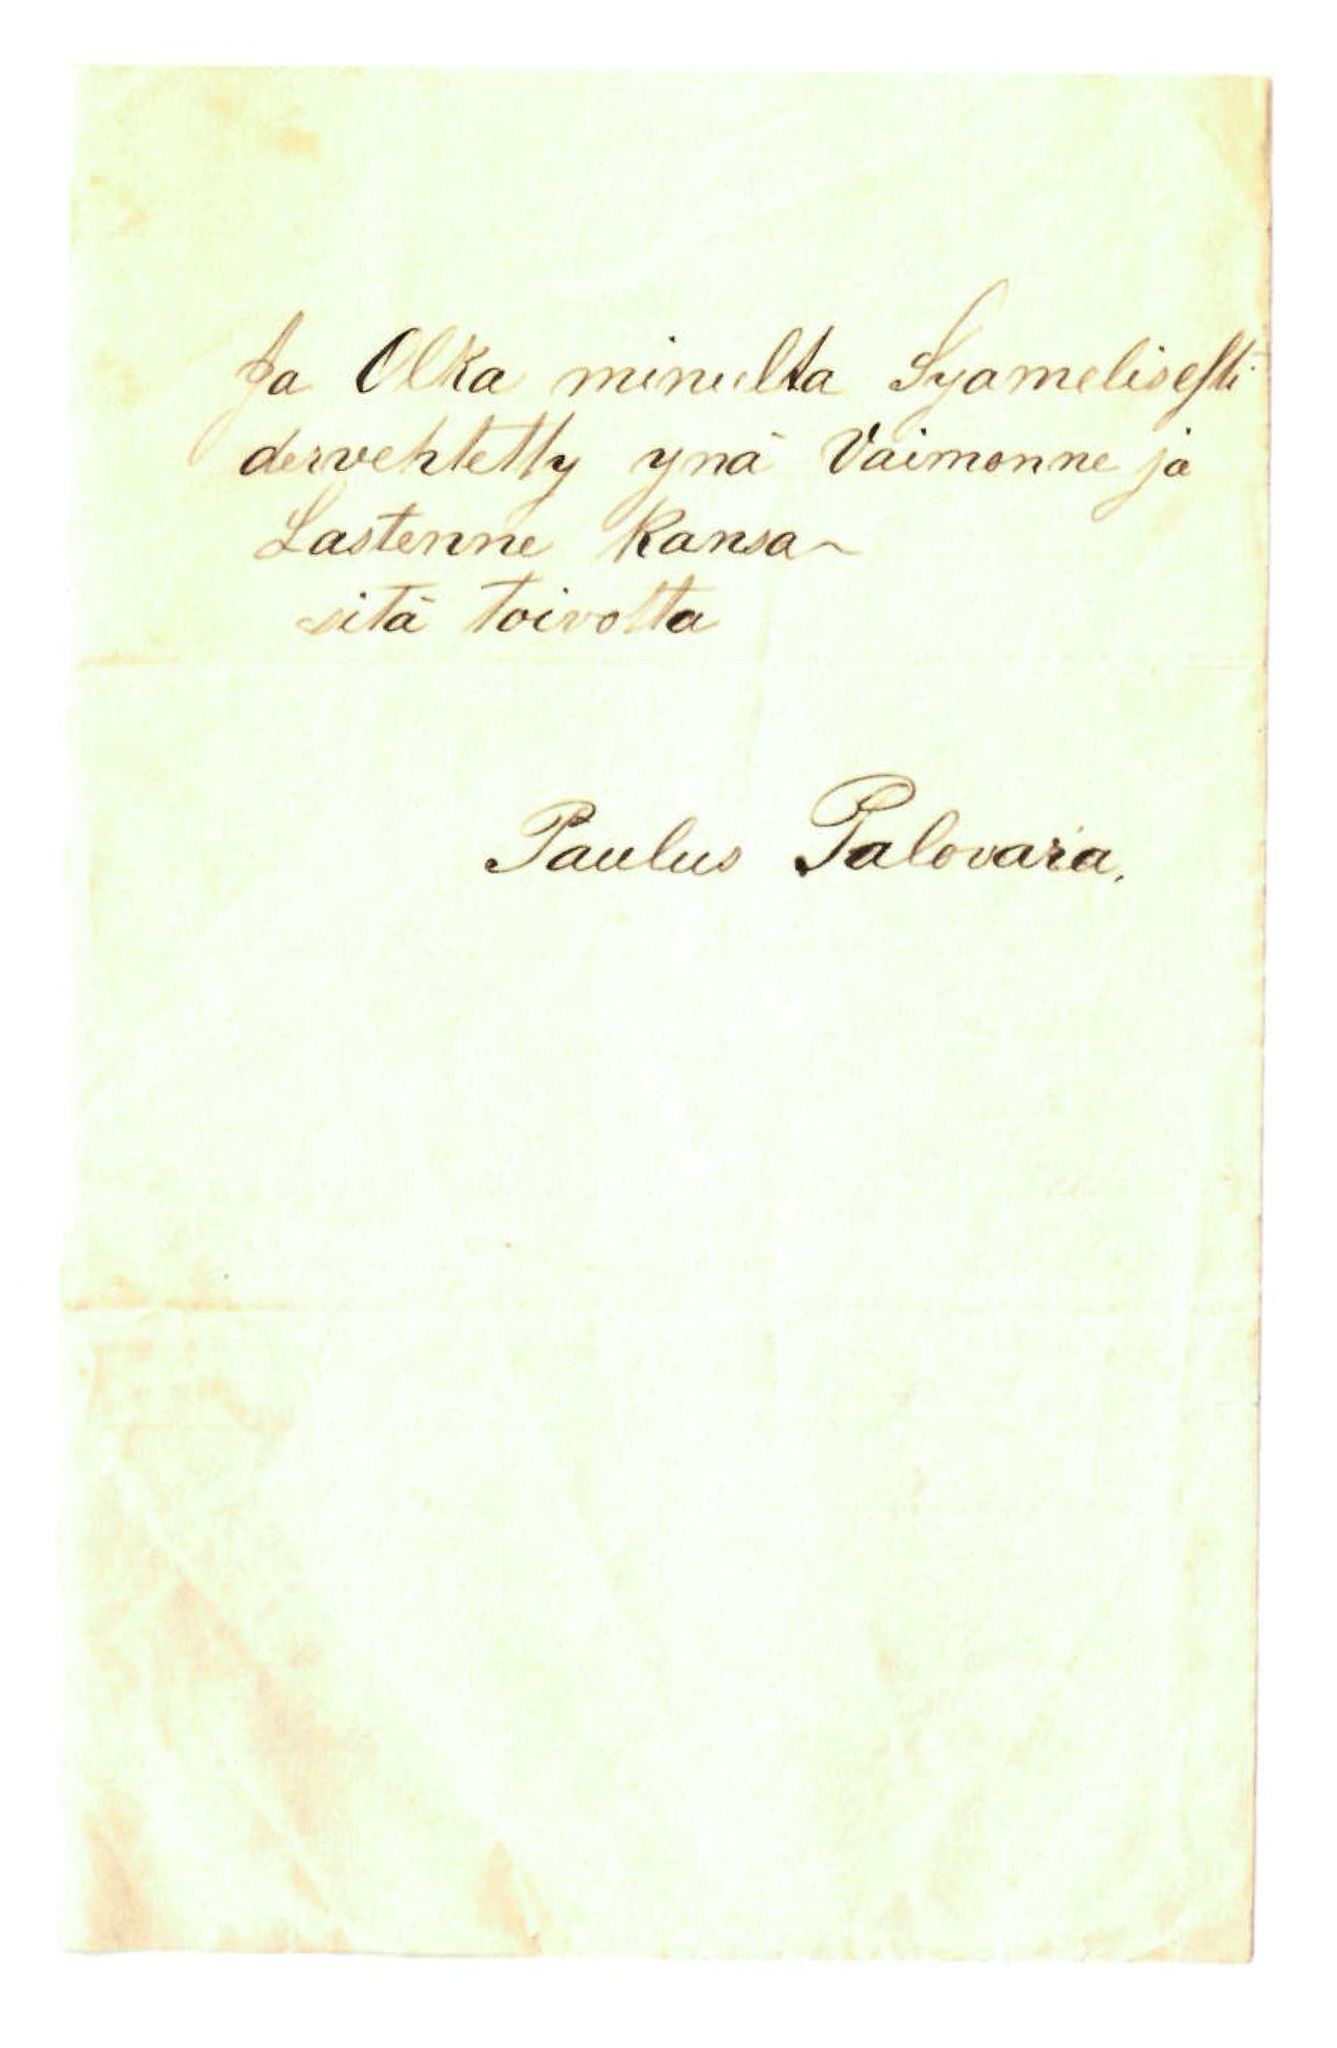 Ja Olka minulta Syamelisesti
dervehtetty ynä Vaimonne ja
Lastenne kansa~
sitä toivotta
Paulus Palovara.